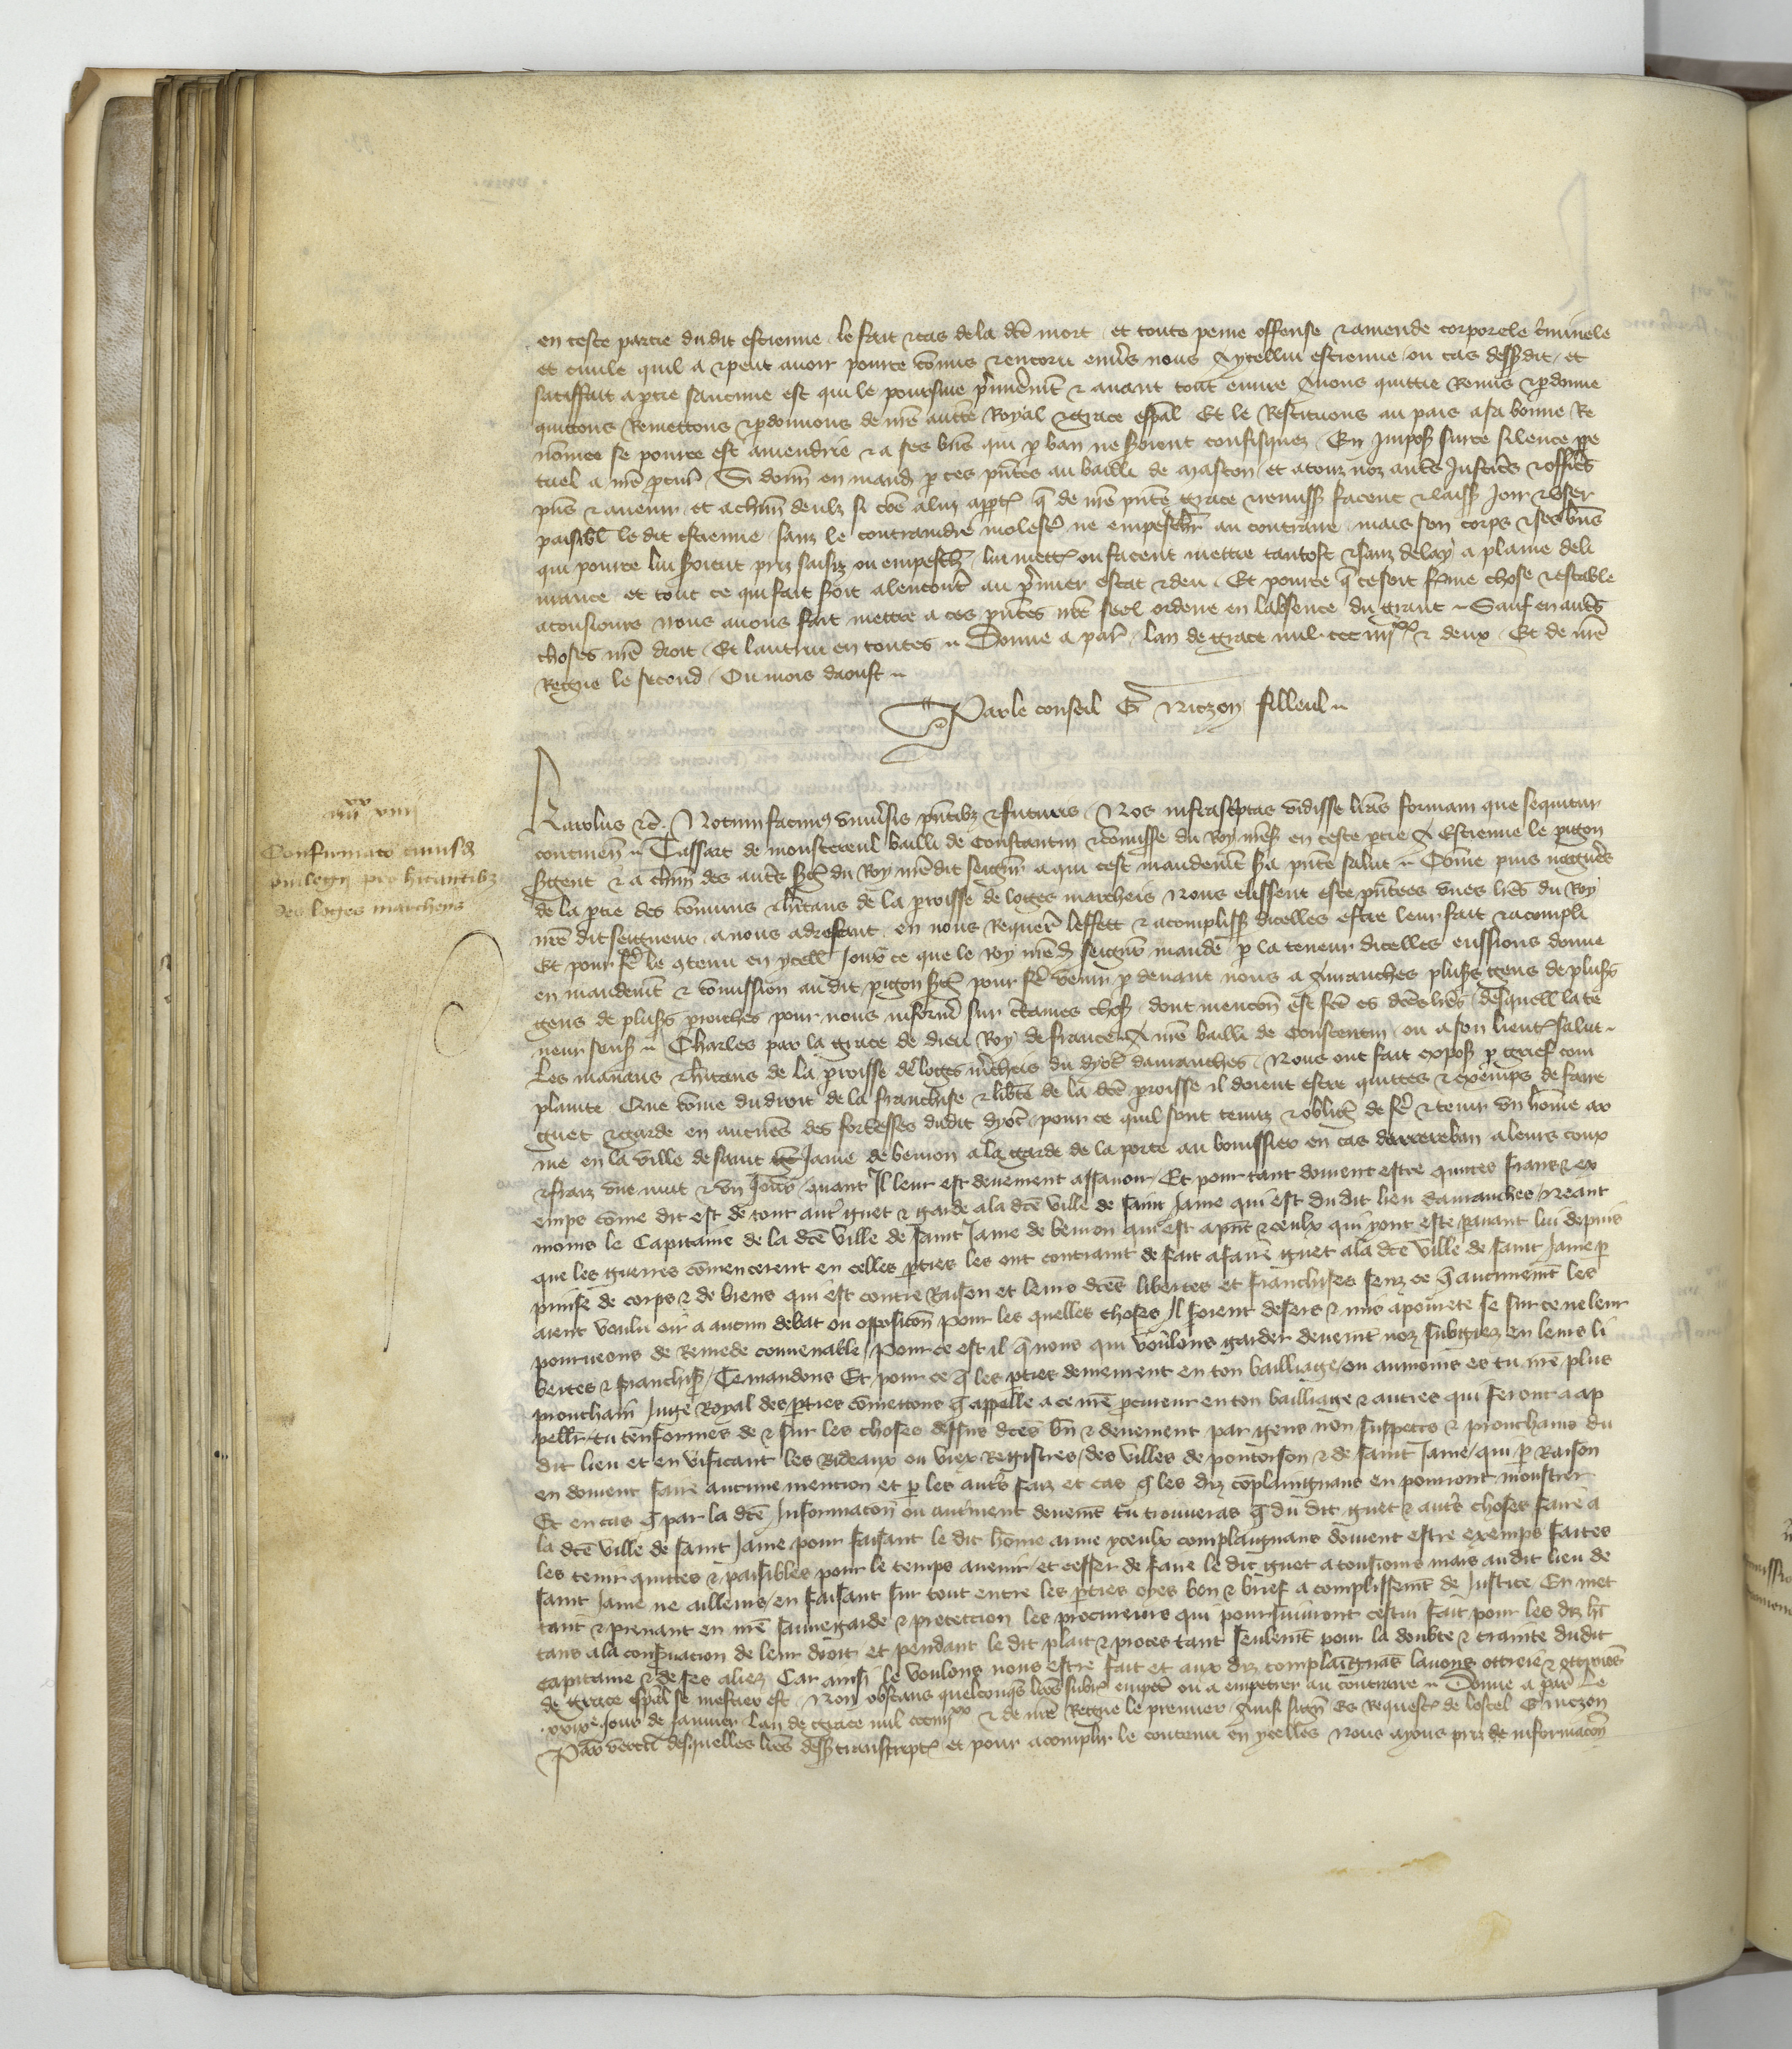 en ceste partie dudit estienne le fait et cas de la dce mort et toute peine offense et amende corporele criminele
et civile quil a et peut avoir pource comis et encoru envers nous A ycellui estienne ou cas dessusdit et
satiffait a ptie saucune est qui le poursuie primierent et avant tout euvre Avons quittie Remis et pdonne
quittons Remettons et pdonnons de nre autte Royal et grace espal Et le Restituons au pais a sa bonne Re
nomee se pource est amendrie et a ses bns qui p ban ne soient confisquez En Impos surce silence ppe
tuel a nre pcur Si donn en mand p ces pntes au bailli de mascon et a touz noz autres Justiciers et offics
pns et avenir et a chun deulz si coe a lui appt q de nre pnte grace et remiss facent et laiss Joir et user
paisibl le dit estienne sanz le contraindre molest ne empeschr au contraire mais son corps et ses bns
qui pource lui soient priz saisiz ou empesch lui mett ou facent mettre tantost et sanz delay a plaine deli
vrance et tout ce qui fait soit alencontre au primier estat et deu Et pource q ce soit ferme chose et estable
a tousiours nous avons fait mettre a ces pntes nre seel ordene en labsence du grant Sauf en autres
choses nre droit Et lautrui en toutes Donne a par lan de grace mil ccc iiijxx et deux Et de nre
Regne le second Ou mois daoust
Par le conseil G Niczon filleul
iiijxx viij
Confirmato cuiusd
privilegii pro hitantibz
des loges marcheys
Karolus etc. Notum facimus universis pntibz et futuris Nos infrascriptas vidisse lras formam que sequitur
continen Tassart de monstereul bailli de Constantin et comisse du Roy nres en ceste ptie A Estienne le pigon
sgent et a chun des autres sg du Roy nredit seign a qui cest mandement sa pnte salut Come puis nagueres
de la ptie des comuns et hitans de la proisse de loges marcheis Nous eussent este pntees unes lres du Roy
nre dit seigneur a nous adresant en nous Requer leffett et acompliss dicelles estre leur fait et acompli
Et pour fe le contenu en ycell Jouxte ce que le Roy nre d seignr mande p la teneur dicelles eussions donne
en mandemt et comission au dit pigon sg pour fe venir p devant nous a Avranches plusrs gens de plusrs
gens de plusrs proiches pour nous informer sur ctaines choses dont mencon est fce es dces lres desquell la te
neur sensuit Charles par la grace de dieu Roy de france A nre bailli de Constentin ou a son lieut salut
Les manans et hitans de la proisse de loges mcheis du dyoc davranches Nous ont fait expos p grief com
plainte Que come du droit de la franchise et libte de la dce proisse il doient estre quittes et exemps de faire
guet et garde en aucunes des fortesses dudit dyoc pour ce quil sont tenuz et oblig de fe et tenir un home ar
me en la ville de saint Jame de bevron a la garde de la porte au bouissier en cas darrereban a leurs coux
et fraiz une nuit et un Jour quant Il leur est deuement assavoir Et pour tant doivent estre quittes frans et ex
emps come dit est de tout autre guet et garde a la dce ville de saint Jame qui est du dit lieu davranches Neant
moins le Capitaine de la dce ville de saint Jame de bevron qui est a pnt et ceulx qui yont este pavant lui depuis
que les guerres comencerent en celles pties les ont contraint de fait a faire guet a la dce ville de saint Jame p
prinse de corps et de biens qui est contre Raison et leurs dces libertes et franchises senz ce q aucunemt les
aient voulu oir a aucun debat ou opposicon pour les quelles choses Il soient desers et mis a povrete se sur ce ne leur
pourveons de Remede convenable Pour ce est il q nous qui voulons garder deuemt noz subgiez en leurs li
bertes et franchis Te mandons Et pour ce q les pties demeurent en ton bailliage ou aumoins es tu nre plus
prouchain Juge Royal des pties comettons q appelle a ce nre pcureur en ton bailliage et autres qui feront a ap
peller tu tenformes de et sur les choses dessus dces bn et deuement par gens non suspects et prouchains du
dit lieu et en visitant les Rideaux ou viex Registres des villes de pontorson et de saint Jame qui p Raison
en doivent faire aucune mention et p les autres faiz et cas q les diz complaingnans en pourront monstrer
Et en cas q par la dce Informacon ou autrment deuemt tu trouveras q du dit guet et autres choses faire a
la dce ville de saint Jame pour faisant le dit home arme yceulx complaingnans doivent estre exemps faites
les tenir quittes et paisibles pour le temps avenir et cesser de faire le dit guet a tousiours mais au dit lieu de
saint Jame ne ailleurs en faisant sur tout entre les pties oyes bon et brief acomplissemt de Justice En met
tant et prenant en nre sauvegarde et protection les procureurs qui poursuivront cestui fait pour les diz hi
tans a la consvacion de leur droit et pendant le dit plait et proces tant seulemt pour la doubte et crainte dudit
capitaine et de ses aliez Car ainsi le voulons nous estre fait et aux diz complaingnans lavons ottroie et ottroions
de grace espal se mestier est Non obstans quelconqs lres subr empetr ou a empetrer au contraire Donne a par Le
xxixe Jour de Janvier Lan de grace mil ccc iiijxx et de nre Regne le premier Ainsi sign Es Requestes de lostel G Niczon
Par vertu desquelles lres dess transcript et pour acomplir le contenu en ycelles Nous ayons priz de informacon